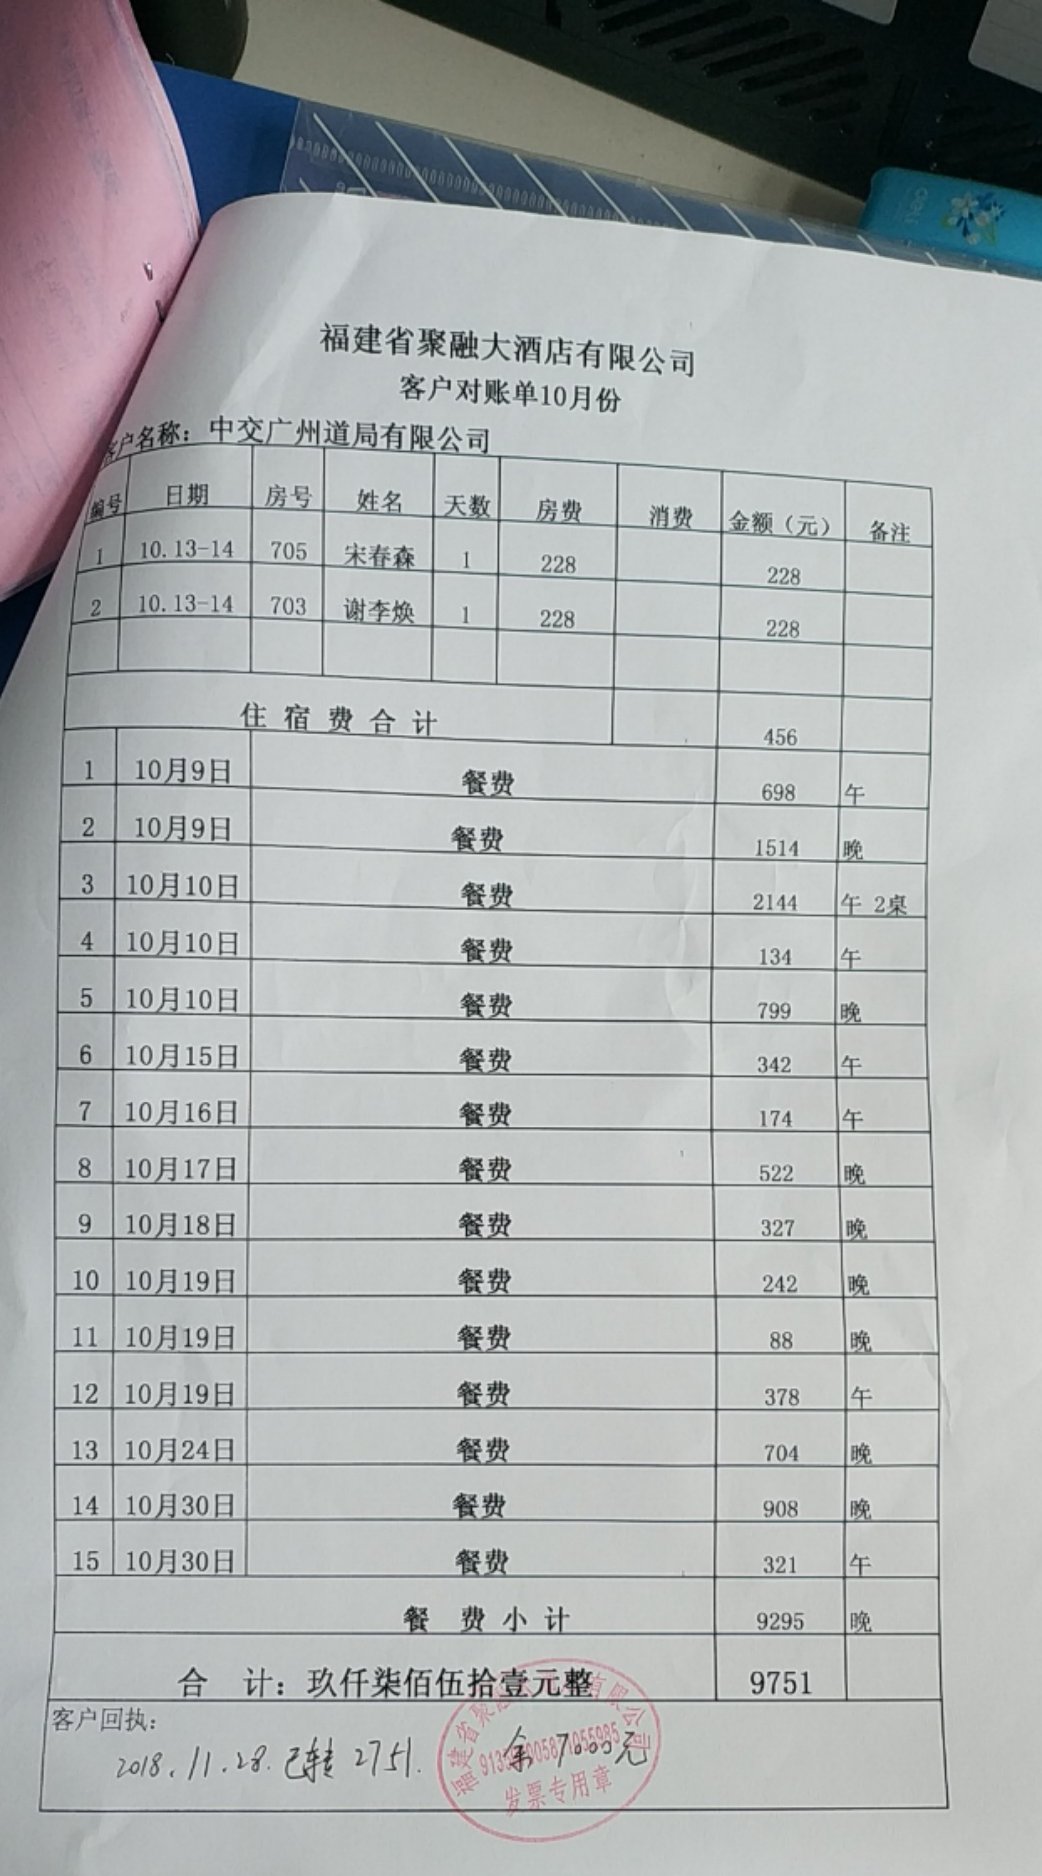 福建省聚融大酒店有限公司
客户对账单10月份
客户名称：中交广州道局有限公司
编号 日期 房号 姓名 天数 房费 消费 金额（元） 备注
1 10.13-14 705 宋春森 1 228 228
2 10.13-14 703 谢李焕 1 228 228
住宿费合计 456
1 10月9日 餐费 698 午
2 10月9日 餐费 1514 晚
3 10月10日 餐费 2144 午 2桌
4 10月10日 餐费 134 午
5 10月10日 餐费 799 晚
6 10月15日 餐费 342 午
7 10月16日 餐费 174 午
8 10月17日 餐费 522 晚
9 10月18日 餐费 327 晚
10 10月19日 餐费 242 晚
11 10月19日 餐费 88 晚
12 10月19日 餐费 378 午
13 10月24日 餐费 704 晚
14 10月30日 餐费 908 晚
15 10月30日 餐费 321 午
餐 费小计 9295 晚
合 计：玖仟柒佰伍拾壹元整 9751
客户回执：
2018.11.28.已转2751. 余7000元
福建省聚融 有限公司
发票专用章